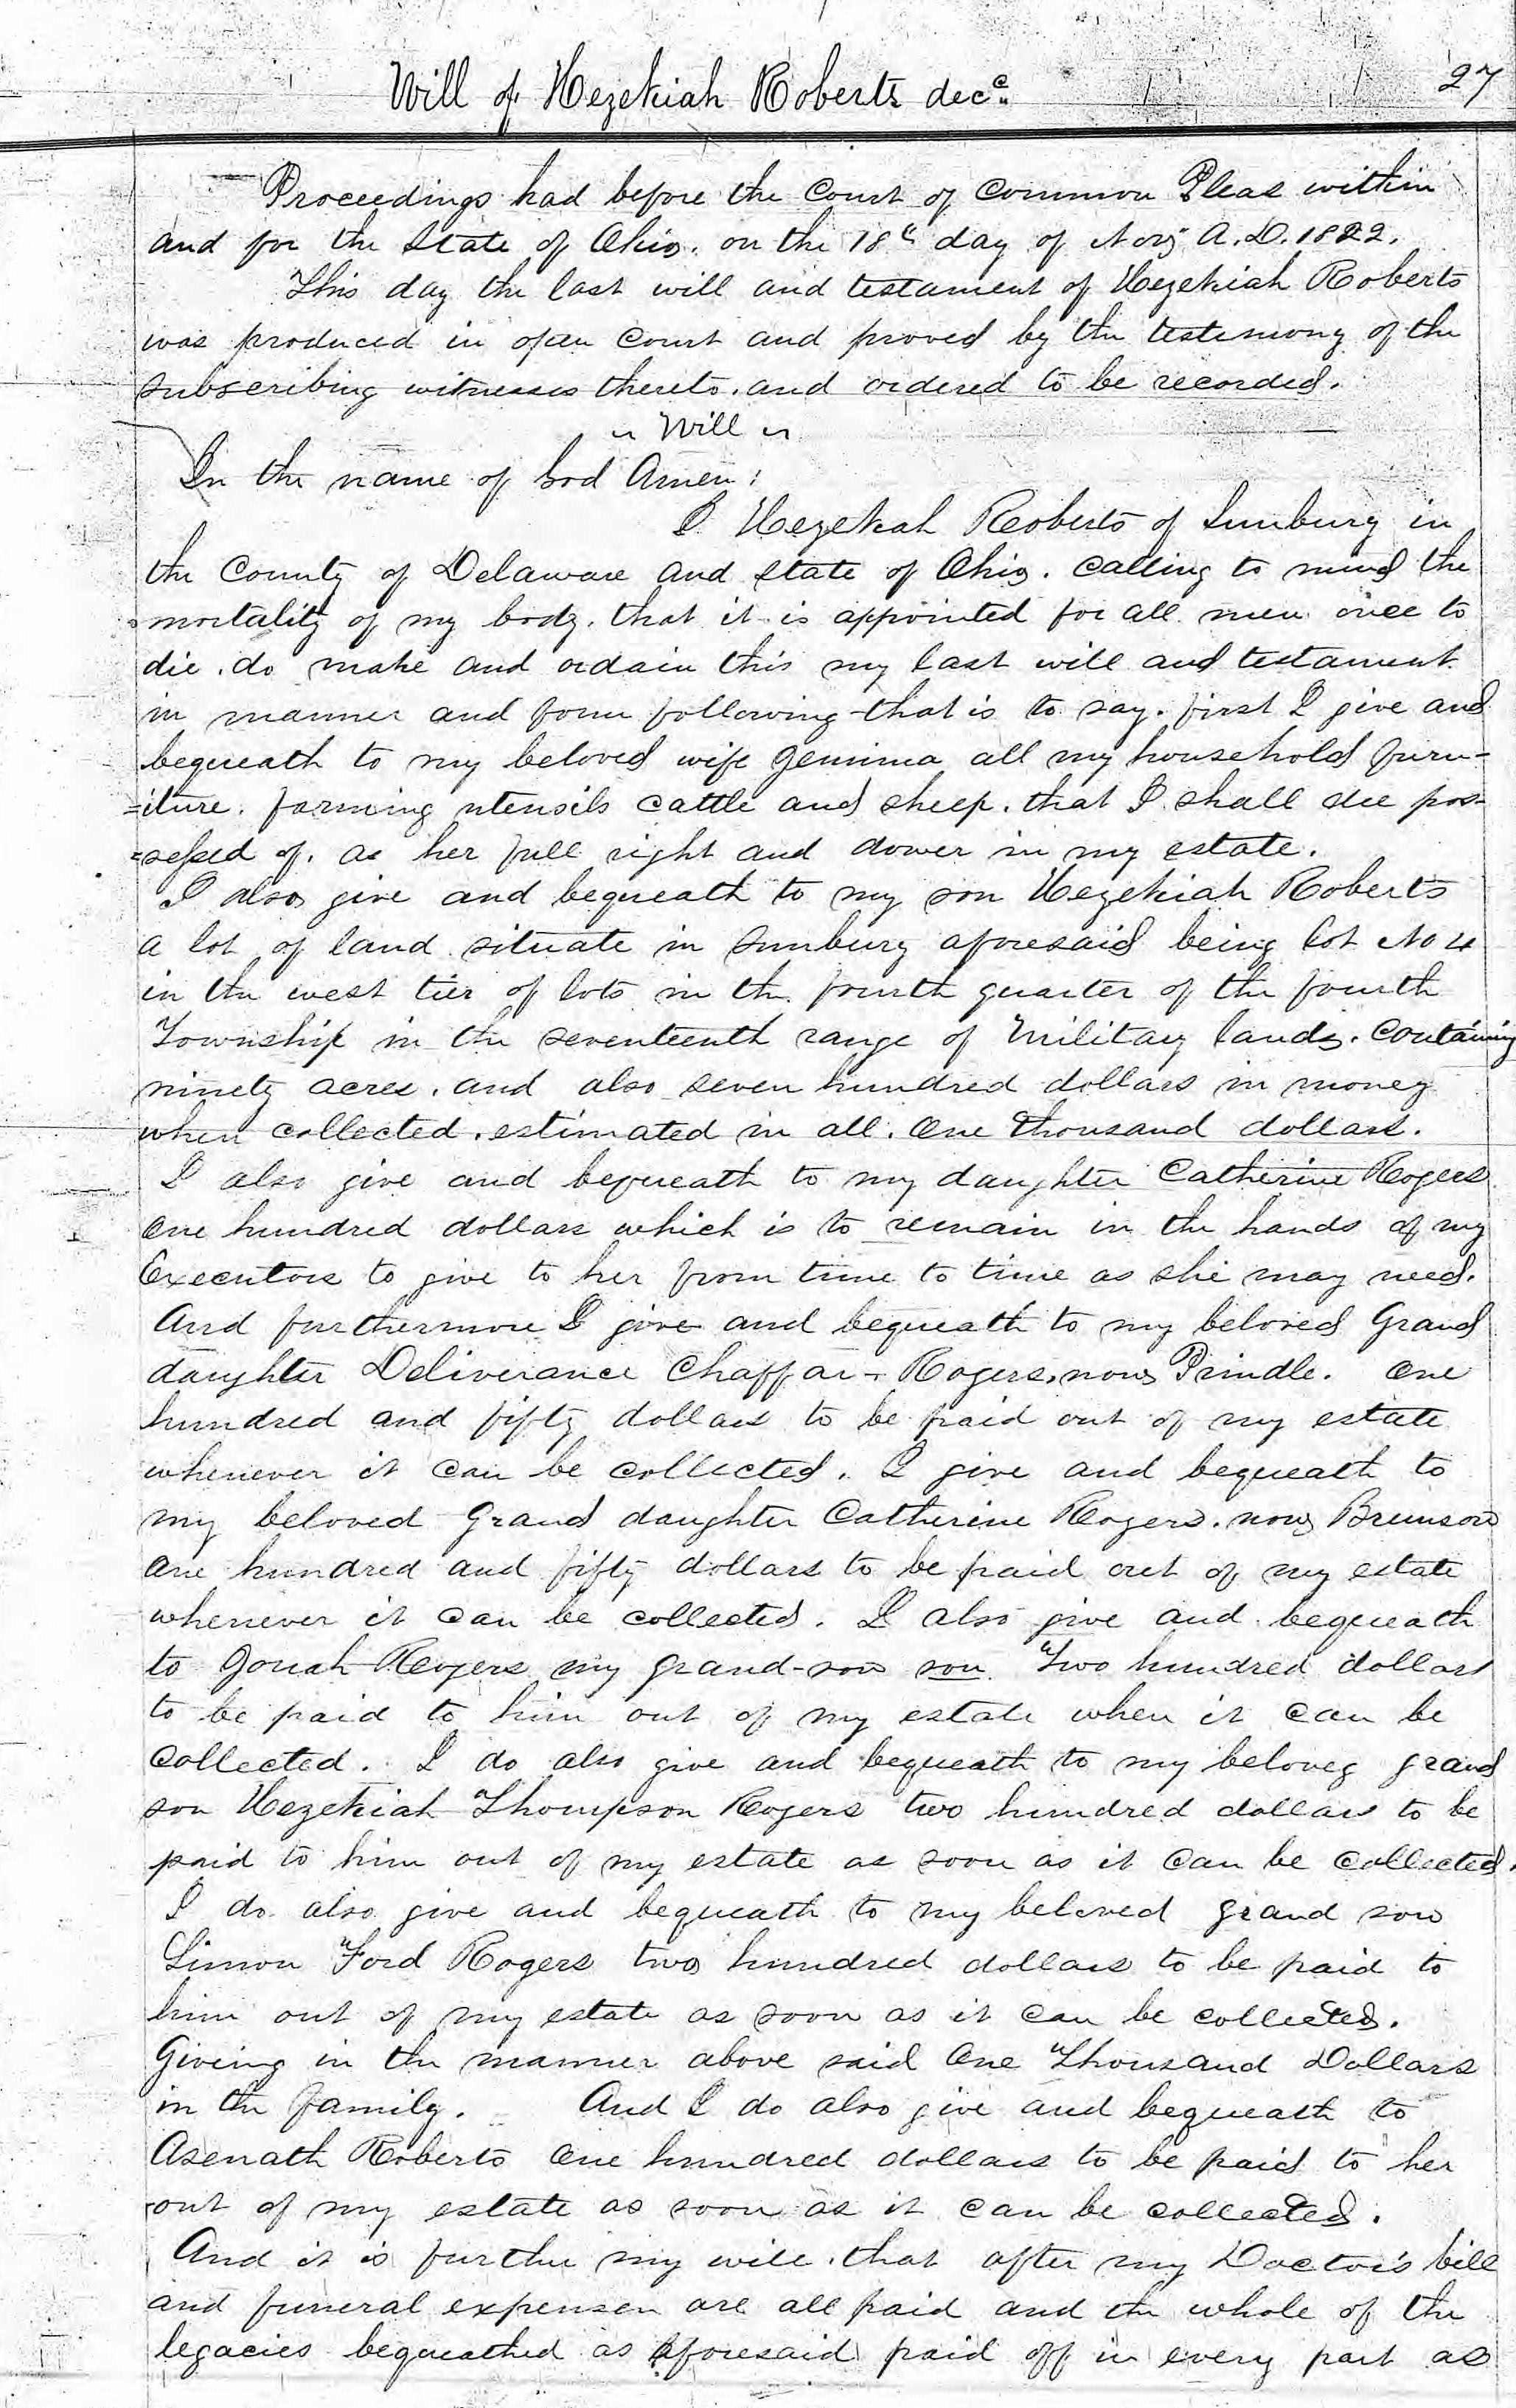 Will of Hezekiah Roberts decd. 27
Proceedings had before the Court of Common Pleas within
and for the State of Ohio. on the 18th day of Novr A.D. 1822.
This day the last will and testament of Hezekiah Roberts
was produced in open Court and proved by the testimony of the
subscribing witnesses thereto. and ordered to be recorded.
" Will "
In the name of God Amen:
I Hezekiah Roberts of Sunbury in
the County of Delaware and State of Ohio. Calling to mind the
mortality of my body. that it is appointed for all men once to
die. do make and ordain this my last will and testament
in manner and form following that is to say. first I give and
bequeath to my beloved wife Jemima all my household furn-
=iture. farming utensils cattle and sheep. that I shall die pos-
=sessed of. as her full right and dower in my estate.
I also give and bequeath to my son Hezekiah Roberts
a lot of land situate in Sunbury aforesaid being lot No 4
in the west tier of lots in the fourth quarter of the fourth
Township in the seventeenth range of Military lands. Containing
ninety acres. and also seven hundred dollars in money
when collected. estimated in all. One thousand dollars.
I also give and bequeath to my daughter Catherine Rogers
One hundred dollars which is to remain in the hands of my
Executors to give to her from time to time as she may need.
And furthermore I give and bequeath to my beloved Grand
daughter Deliverance Chaffar - Rogers. now Prindle. One
hundred and fifty dollars to be paid out of my estate
whenever it can be collected. I give and bequeath to
my beloved Grand daughter Catherine Rogers. now Brunson
one hundred and fifty dollars to be paid out of my estate
whenever it can be collected. I also give and bequeath
to Jonah Rogers my grand-son son Two hundred dollars
to be paid to him out of my estate when it can be
Collected. I do also give and bequeath to my beloveg grand
son Hezekiah Thompson Rogers two hundred dollars to be
paid to him out of my estate as soon as it can be Collected.
I do also give and bequeath to my beloved grand son
Simon Ford Rogers two hundred dollars to be paid to
him out of my estate as soon as it can be collected.
Giving in the manner above said One Thousand Dollars
in the family. And I do also give and bequeath to
Asenath Roberts One hundred dollars to be paid to her
out of my estate as soon as it can be collected.
And it is further my will. that after my Doctor's bill
and funeral expensen are all paid and the whole of the
legacies bequeathed as aforesaid paid off in every part as